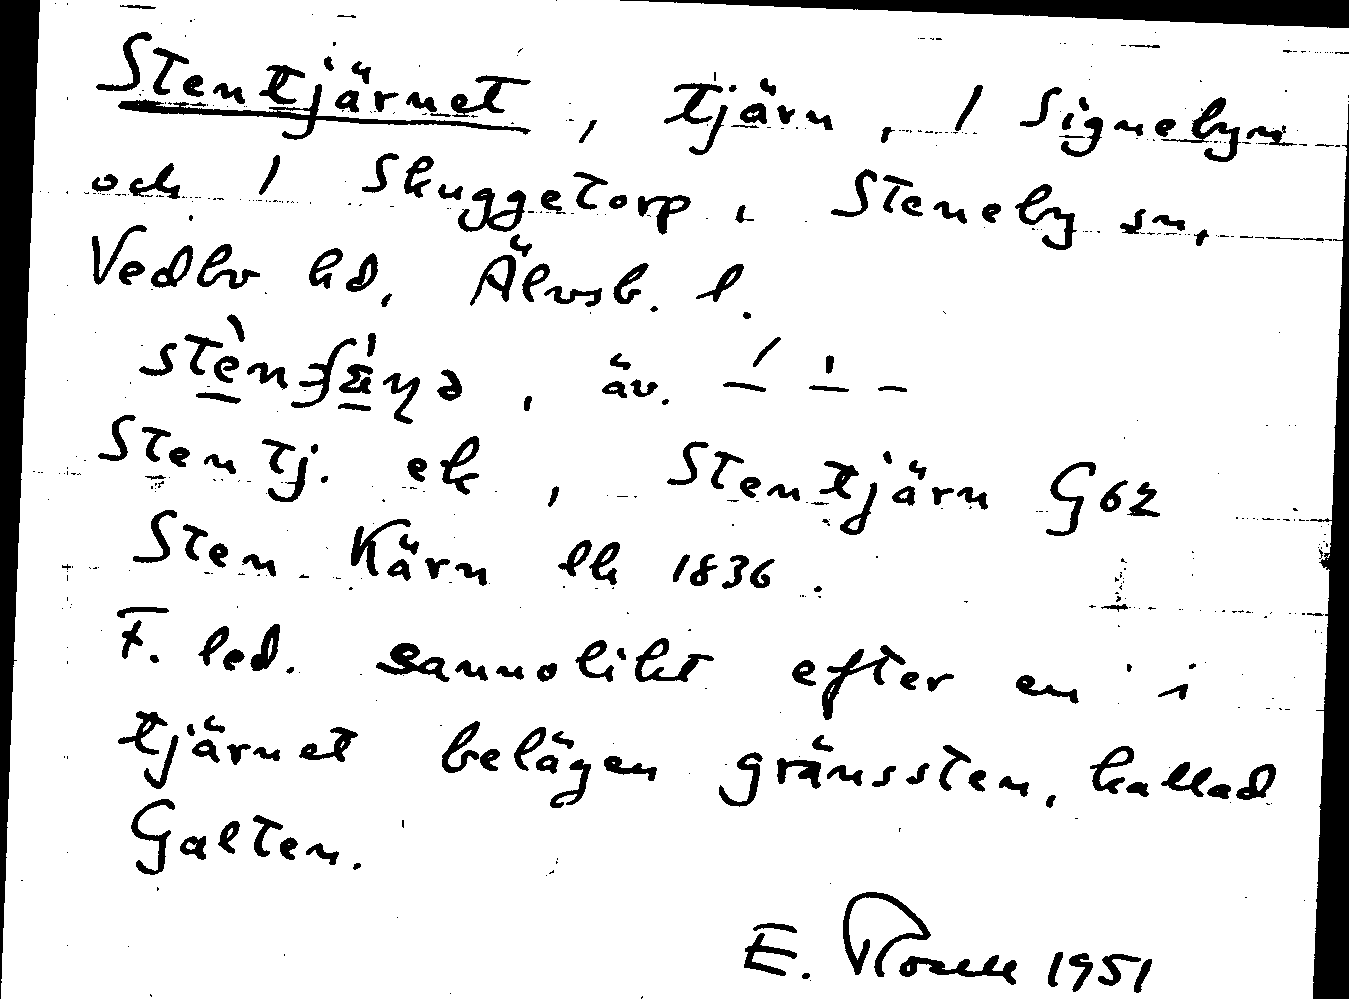 Stentjärnet, tjärn, / Signebyn
och / Skuggetorp, Steneby sn,
Vedbo hd, Älvsb. l.
äv.
Sten tj. ek, Stentjärn G62
Sten Kärn lh 1836.
F. led. sannolikt efter en i
tjärnet belägen gränssten, kallad
Galten.
E. Rosell 1951